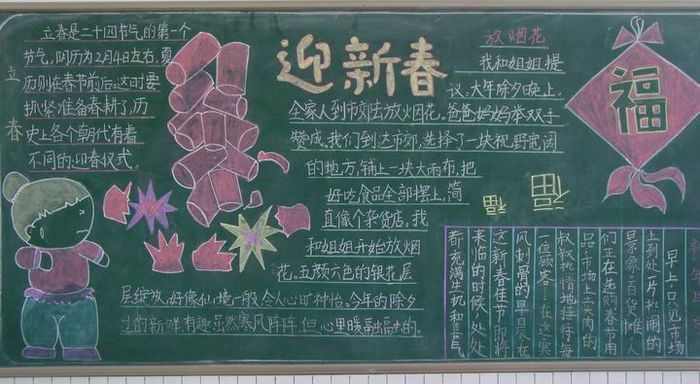 立春
立春是二十四节气的第一个
节气,阴历为2月4日左右,夏
历则在春节前后,这时要
抓紧准备春耕了,历
史上各个朝代有着
不同的迎春仪式。
迎新春
放烟花
我和姐姐提
议,大年除夕晚上,
全家人到市郊去放烟花。爸爸妈妈举双手
赞成。我们到达市郊,选择了一块视野宽阔
的地方,铺上一块大雨布,把
好吃食品全部摆上,简
直像个杂货店,我
和姐姐开始放烟
花。五颜六色的银花层
层绽放,好像仙境一般,令人心旷神怡。今年的除夕
过的新鲜有趣,虽然寒风阵阵,但心里暖融融的。
福
福
福
早上只见市场
上到处一片热闹的
景象,百货摊人
们正在选购春节用
品,市场上卖肉的
叔叔热情地接待每
一位顾客……在这寒
风刺骨的早晨,在
这新春佳节即将
来临的时候,处处
都充满生机和喜气